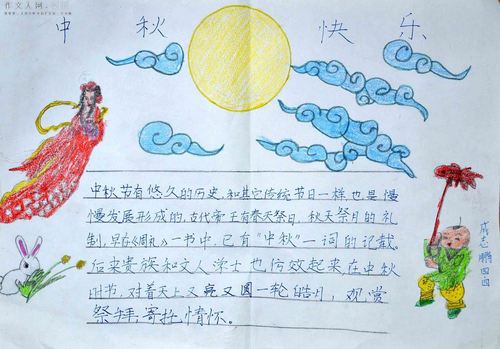 作文人网
中秋快乐
中秋节有悠久的历史,和其它传统节日一样也是慢
慢发展形成的,古代帝王有祭天祭日,秋天祭月的礼
制,早在《周礼》一书中,已有“中秋”一词的记载。
后来贵族和文人学士也仿效起来在中秋
时节,对着天上又亮又圆一轮皓月,观赏
祭拜;寄托情怀。